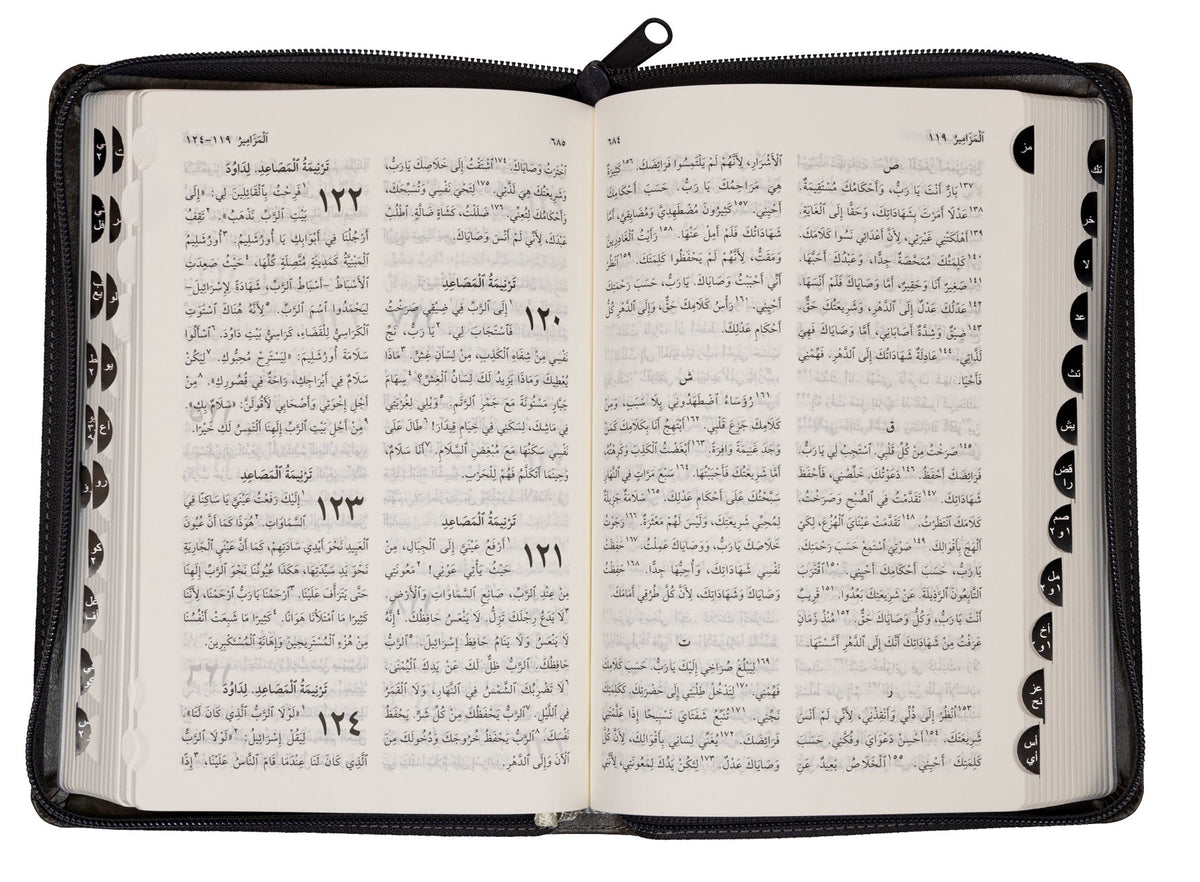 اَلْمَزَامِيرُ ١١٩
٦٨٤
ص
١٣٧ بَارٌّ أَنْتَ يَا رَبُّ، وَأَحْكَامُكَ مُسْتَقِيمَةٌ.
١٣٨ عَدْلًا أَمَرْتَ بِشَهَادَاتِكَ، وَحَقًّا إِلَى ٱلْغَايَةِ.
١٣٩ أَهْلَكَتْنِي غَيْرَتِي، لِأَنَّ أَعْدَائِي نَسُوا كَلَامَكَ.
١٤٠ كَلِمَتُكَ مُمَحَّصَةٌ جِدًّا، وَعَبْدُكَ أَحَبَّهَا.
١٤١ صَغِيرٌ أَنَا وَحَقِيرٌ، أَمَّا وَصَايَاكَ فَلَمْ أَنْسَهَا.
١٤٢ عَدْلُكَ عَدْلٌ إِلَى ٱلدَّهْرِ، وَشَرِيعَتُكَ حَقٌّ.
١٤٣ ضِيْقٌ وَشِدَّةٌ أَصَابَانِي، أَمَّا وَصَايَاكَ فَهِيَ
لَذَّاتِي. ١٤٤ عَادِلَةٌ شَهَادَاتُكَ إِلَى ٱلدَّهْرِ. فَهِّمْنِي
فَأَحْيَا.
ق
١٤٥ صَرَخْتُ مِنْ كُلِّ قَلْبِي. ٱسْتَجِبْ لِي يَا رَبُّ.
فَرَائِضَكَ أَحْفَظُ. ١٤٦ دَعَوْتُكَ. خَلِّصْنِي، فَأَحْفَظَ
شَهَادَاتِكَ. ١٤٧ تَقَدَّمْتُ فِي ٱلصُّبْحِ وَصَرَخْتُ.
كَلَامَكَ ٱنْتَظَرْتُ. ١٤٨ تَقَدَّمَتْ عَيْنَايَ ٱلْهُزُعَ، لِكَيْ
أَلْهَجَ بِأَقْوَالِكَ. ١٤٩ صَوْتِيَ ٱسْتَمِعْ حَسَبَ رَحْمَتِكَ.
يَا رَبُّ، حَسَبَ أَحْكَامِكَ أَحْيِنِي. ١٥٠ ٱقْتَرَبَ
ٱلتَّابِعُونَ ٱلرَّذِيلَةَ. عَنْ شَرِيعَتِكَ بَعُدُوا. ١٥١ قَرِيبٌ
أَنْتَ يَا رَبُّ، وَكُلُّ وَصَايَاكَ حَقٌّ. ١٥٢ مُنْذُ زَمَانٍ
عَرَفْتُ مِنْ شَهَادَاتِكَ أَنَّكَ إِلَى ٱلدَّهْرِ أَسَّسْتَهَا.
ر
١٥٣ اُنْظُرْ إِلَى ذُلِّي وَأَنْقِذْنِي، لِأَنِّي لَمْ أَنْسَ
شَرِيعَتَكَ. ١٥٤ أَحْسِنْ دَعْوَايَ وَفُكَّنِي. حَسَبَ
كَلِمَتِكَ أَحْيِنِي. ١٥٥ ٱلْخَلَاصُ بَعِيدٌ عَنِ
ٱلْأَشْرَارِ، لِأَنَّهُمْ لَمْ يَلْتَمِسُوا فَرَائِضَكَ. ١٥٦ كَثِيرَةٌ
هِيَ مَرَاحِمُكَ يَا رَبُّ. حَسَبَ أَحْكَامِكَ
أَحْيِنِي. ١٥٧ كَثِيرُونَ مُضْطَهِدِيَّ وَمُضَايِقِيَّ. أَمَّا
شَهَادَاتُكَ فَلَمْ أَمِلْ عَنْهَا. ١٥٨ رَأَيْتُ ٱلْغَادِرِينَ
وَمَقَتُّ، لِأَنَّهُمْ لَمْ يَحْفَظُوا كَلِمَتَكَ. ١٥٩ ٱنْظُرْ
أَنِّي أَحْبَبْتُ وَصَايَاكَ. يَا رَبُّ، حَسَبَ رَحْمَتِكَ
أَحْيِنِي. ١٦٠ رَأْسُ كَلَامِكَ حَقٌّ، وَإِلَى ٱلدَّهْرِ كُلُّ
أَحْكَامِ عَدْلِكَ.
ش
١٦١ رُؤَسَاءُ ٱضْطَهَدُونِي بِلَا سَبَبٍ، وَمِنْ
كَلَامِكَ جَزِعَ قَلْبِي. ١٦٢ أَبْتَهِجُ أَنَا بِكَلَامِكَ كَمَنْ
وَجَدَ غَنِيمَةً وَافِرَةً. ١٦٣ أَبْغَضْتُ ٱلْكَذِبَ وَكَرِهْتُهُ،
أَمَّا شَرِيعَتُكَ فَأَحْبَبْتُهَا. ١٦٤ سَبْعَ مَرَّاتٍ فِي ٱلنَّهَارِ
سَبَّحْتُكَ عَلَى أَحْكَامِ عَدْلِكَ. ١٦٥ سَلَامَةٌ جَزِيلَةٌ
لِمُحِبِّي شَرِيعَتِكَ، وَلَيْسَ لَهُمْ مَعْثَرَةٌ. ١٦٦ رَجَوْتُ
خَلَاصَكَ يَا رَبُّ، وَوَصَايَاكَ عَمِلْتُ. ١٦٧ حَفِظَتْ
نَفْسِي شَهَادَاتِكَ، وَأُحِبُّهَا جِدًّا. ١٦٨ حَفِظْتُ
وَصَايَاكَ وَشَهَادَاتِكَ، لِأَنَّ كُلَّ طُرُقِي أَمَامَكَ.
ت
١٦٩ لِيَبْلُغْ صُرَاخِي إِلَيْكَ يَا رَبُّ. حَسَبَ كَلَامِكَ
فَهِّمْنِي. ١٧٠ لِتَدْخُلْ طِلْبَتِي إِلَى حَضْرَتِكَ. كَكَلِمَتِكَ
نَجِّنِي. ١٧١ تُنَبِّعُ شَفَتَايَ تَسْبِيحًا إِذَا عَلَّمْتَنِي
فَرَائِضَكَ. ١٧٢ يُغَنِّي لِسَانِي بِأَقْوَالِكَ، لِأَنَّ كُلَّ
وَصَايَاكَ عَدْلٌ. ١٧٣ لِتَكُنْ يَدُكَ لِمَعُونَتِي، لِأَنَّنِي
٦٨٥
اَلْمَزَامِيرُ ١١٩–١٢٤
ٱخْتَرْتُ وَصَايَاكَ. ١٧٤ ٱشْتَقْتُ إِلَى خَلَاصِكَ يَا رَبُّ،
وَشَرِيعَتُكَ هِيَ لَذَّتِي. ١٧٥ لِتَحْيَ نَفْسِي وَتُسَبِّحَكَ،
وَأَحْكَامُكَ لِتُعِنِّي. ١٧٦ ضَلَلْتُ، كَشَاةٍ ضَالَّةٍ. ٱطْلُبْ
عَبْدَكَ، لِأَنِّي لَمْ أَنْسَ وَصَايَاكَ.
تَرْنِيمَةُ ٱلْمَصَاعِدِ
١٢٠ ١ إِلَى ٱلرَّبِّ فِي ضِيْقِي صَرَخْتُ
فَٱسْتَجَابَ لِي. ٢ يَا رَبُّ، نَجِّ
نَفْسِي مِنْ شِفَاهِ ٱلْكَذِبِ، مِنْ لِسَانِ غِشٍّ. ٣ مَاذَا
يُعْطِيكَ وَمَاذَا يَزِيدُ لَكَ لِسَانُ ٱلْغِشِّ؟ ٤ سِهَامَ
جَبَّارٍ مَسْنُونَةً مَعَ جَمْرِ ٱلرَّتَمِ. ٥ وَيْلِي لِغُرْبَتِي
فِي مَاشِكَ، لِسَكَنِي فِي خِيَامِ قِيدَارَ! ٦ طَالَ عَلَى
نَفْسِي سَكَنُهَا مَعَ مُبْغِضِ ٱلسَّلَامِ. ٧ أَنَا سَلَامٌ،
وَحِينَمَا أَتَكَلَّمُ فَهُمْ لِلْحَرْبِ.
تَرْنِيمَةُ ٱلْمَصَاعِدِ
١٢١ ١ أَرْفَعُ عَيْنَيَّ إِلَى ٱلْجِبَالِ، مِنْ
حَيْثُ يَأْتِي عَوْنِي! ٢ مَعُونَتِي
مِنْ عِنْدِ ٱلرَّبِّ، صَانِعِ ٱلسَّمَاوَاتِ وَٱلْأَرْضِ.
٣ لَا يَدَعُ رِجْلَكَ تَزِلُّ. لَا يَنْعَسُ حَافِظُكَ. ٤ إِنَّهُ
لَا يَنْعَسُ وَلَا يَنَامُ حَافِظُ إِسْرَائِيلَ. ٥ ٱلرَّبُّ
حَافِظُكَ. ٱلرَّبُّ ظِلٌّ لَكَ عَنْ يَدِكَ ٱلْيُمْنَى.
٦ لَا تَضْرِبُكَ ٱلشَّمْسُ فِي ٱلنَّهَارِ، وَلَا ٱلْقَمَرُ
فِي ٱللَّيْلِ. ٧ ٱلرَّبُّ يَحْفَظُكَ مِنْ كُلِّ شَرٍّ. يَحْفَظُ
نَفْسَكَ. ٨ ٱلرَّبُّ يَحْفَظُ خُرُوجَكَ وَدُخُولَكَ مِنَ
ٱلْآنَ وَإِلَى ٱلدَّهْرِ.
تَرْنِيمَةُ ٱلْمَصَاعِدِ. لِدَاوُدَ
١٢٢ ١ فَرِحْتُ بِٱلْقَائِلِينَ لِي: «إِلَى
بَيْتِ ٱلرَّبِّ نَذْهَبُ». ٢ تَقِفُ
أَرْجُلُنَا فِي أَبْوَابِكِ يَا أُورُشَلِيمُ. ٣ أُورُشَلِيمُ
ٱلْمَبْنِيَّةُ كَمَدِينَةٍ مُتَّصِلَةٍ كُلِّهَا، ٤ حَيْثُ صَعِدَتِ
ٱلْأَسْبَاطُ -أَسْبَاطُ ٱلرَّبِّ، شَهَادَةً لِإِسْرَائِيلَ-
لِيَحْمَدُوا ٱسْمَ ٱلرَّبِّ. ٥ لِأَنَّهُ هُنَاكَ ٱسْتَوَتِ
ٱلْكَرَاسِيُّ لِلْقَضَاءِ، كَرَاسِيُّ بَيْتِ دَاوُدَ. ٦ ٱسْأَلُوا
سَلَامَةَ أُورُشَلِيمَ: «لِيَسْتَرِحْ مُحِبُّوكِ. ٧ لِيَكُنْ
سَلَامٌ فِي أَبْرَاجِكِ، رَاحَةٌ فِي قُصُورِكِ». ٨ مِنْ
أَجْلِ إِخْوَتِي وَأَصْحَابِي لَأَقُولَنَّ: «سَلَامٌ بِكِ».
٩ مِنْ أَجْلِ بَيْتِ ٱلرَّبِّ إِلَهِنَا أَلْتَمِسُ لَكِ خَيْرًا.
تَرْنِيمَةُ ٱلْمَصَاعِدِ
١٢٣ ١ إِلَيْكَ رَفَعْتُ عَيْنَيَّ يَا سَاكِنًا فِي
ٱلسَّمَاوَاتِ. ٢ هُوَذَا كَمَا أَنَّ عُيُونَ
ٱلْعَبِيدِ نَحْوَ أَيْدِي سَادَتِهِمْ، كَمَا أَنَّ عَيْنَيِ ٱلْجَارِيَةِ
نَحْوَ يَدِ سَيِّدَتِهَا، هَكَذَا عُيُونُنَا نَحْوَ ٱلرَّبِّ إِلَهِنَا
حَتَّى يَتَرَأَّفَ عَلَيْنَا. ٣ ٱرْحَمْنَا يَا رَبُّ ٱرْحَمْنَا، لِأَنَّنَا
كَثِيرًا مَا ٱمْتَلَأْنَا هَوَانًا. ٤ كَثِيرًا مَا شَبِعَتْ أَنْفُسُنَا
مِنْ هُزْءِ ٱلْمُسْتَرِيحِينَ وَإِهَانَةِ ٱلْمُسْتَكْبِرِينَ.
تَرْنِيمَةُ ٱلْمَصَاعِدِ. لِدَاوُدَ
١٢٤ ١ «لَوْلَا ٱلرَّبُّ ٱلَّذِي كَانَ لَنَا».
لِيَقُلْ إِسْرَائِيلُ: ٢ «لَوْلَا ٱلرَّبُّ
ٱلَّذِي كَانَ لَنَا عِنْدَمَا قَامَ ٱلنَّاسُ عَلَيْنَا، ٣ إِذًا
مز
تك
خر
لا
عد
تث
يش
قض
را
صم
رو ٢
مل
أخ
عز
نح
أس
أي